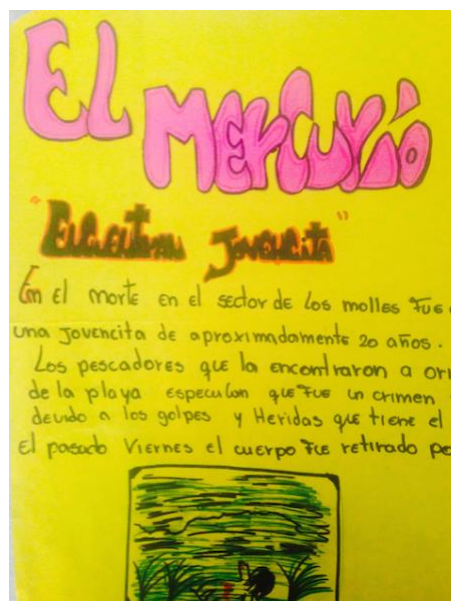 El Mercurio
"Encuentran Jovencita"
En el morte en el sector de los molles Fue
una jovencita de aproximadamente 20 años.
Los pescadores que la encontraron a ori
de la playa especulan que Fue un crimen
devido a los golpes y Heridas que tiene el
El pasado Viernes el cuerpo Fue retirado po